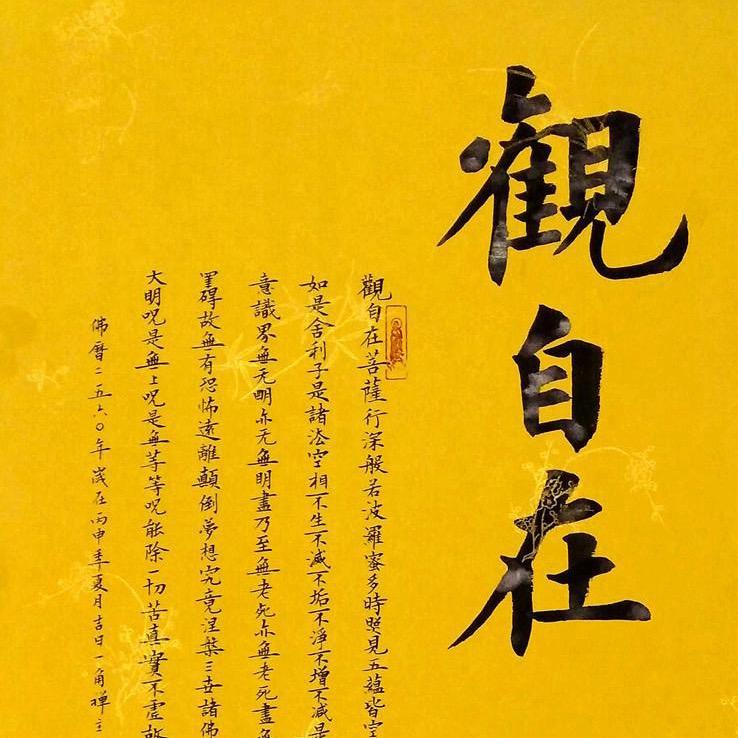 觀自在
觀自在菩薩行深般若波羅蜜多時照見五蘊皆空
如是舍利子是諸法空相不生不滅不垢不淨不增不減是
意識界無无明亦无無明盡乃至無老死亦無老死盡無
罣礙故無有恐怖遠離顛倒夢想究竟涅槃三世諸佛
大明咒是無上咒是無等等咒能除一切苦真實不虛故
佛曆二五六〇年歲在丙申年夏月吉日一角禪主